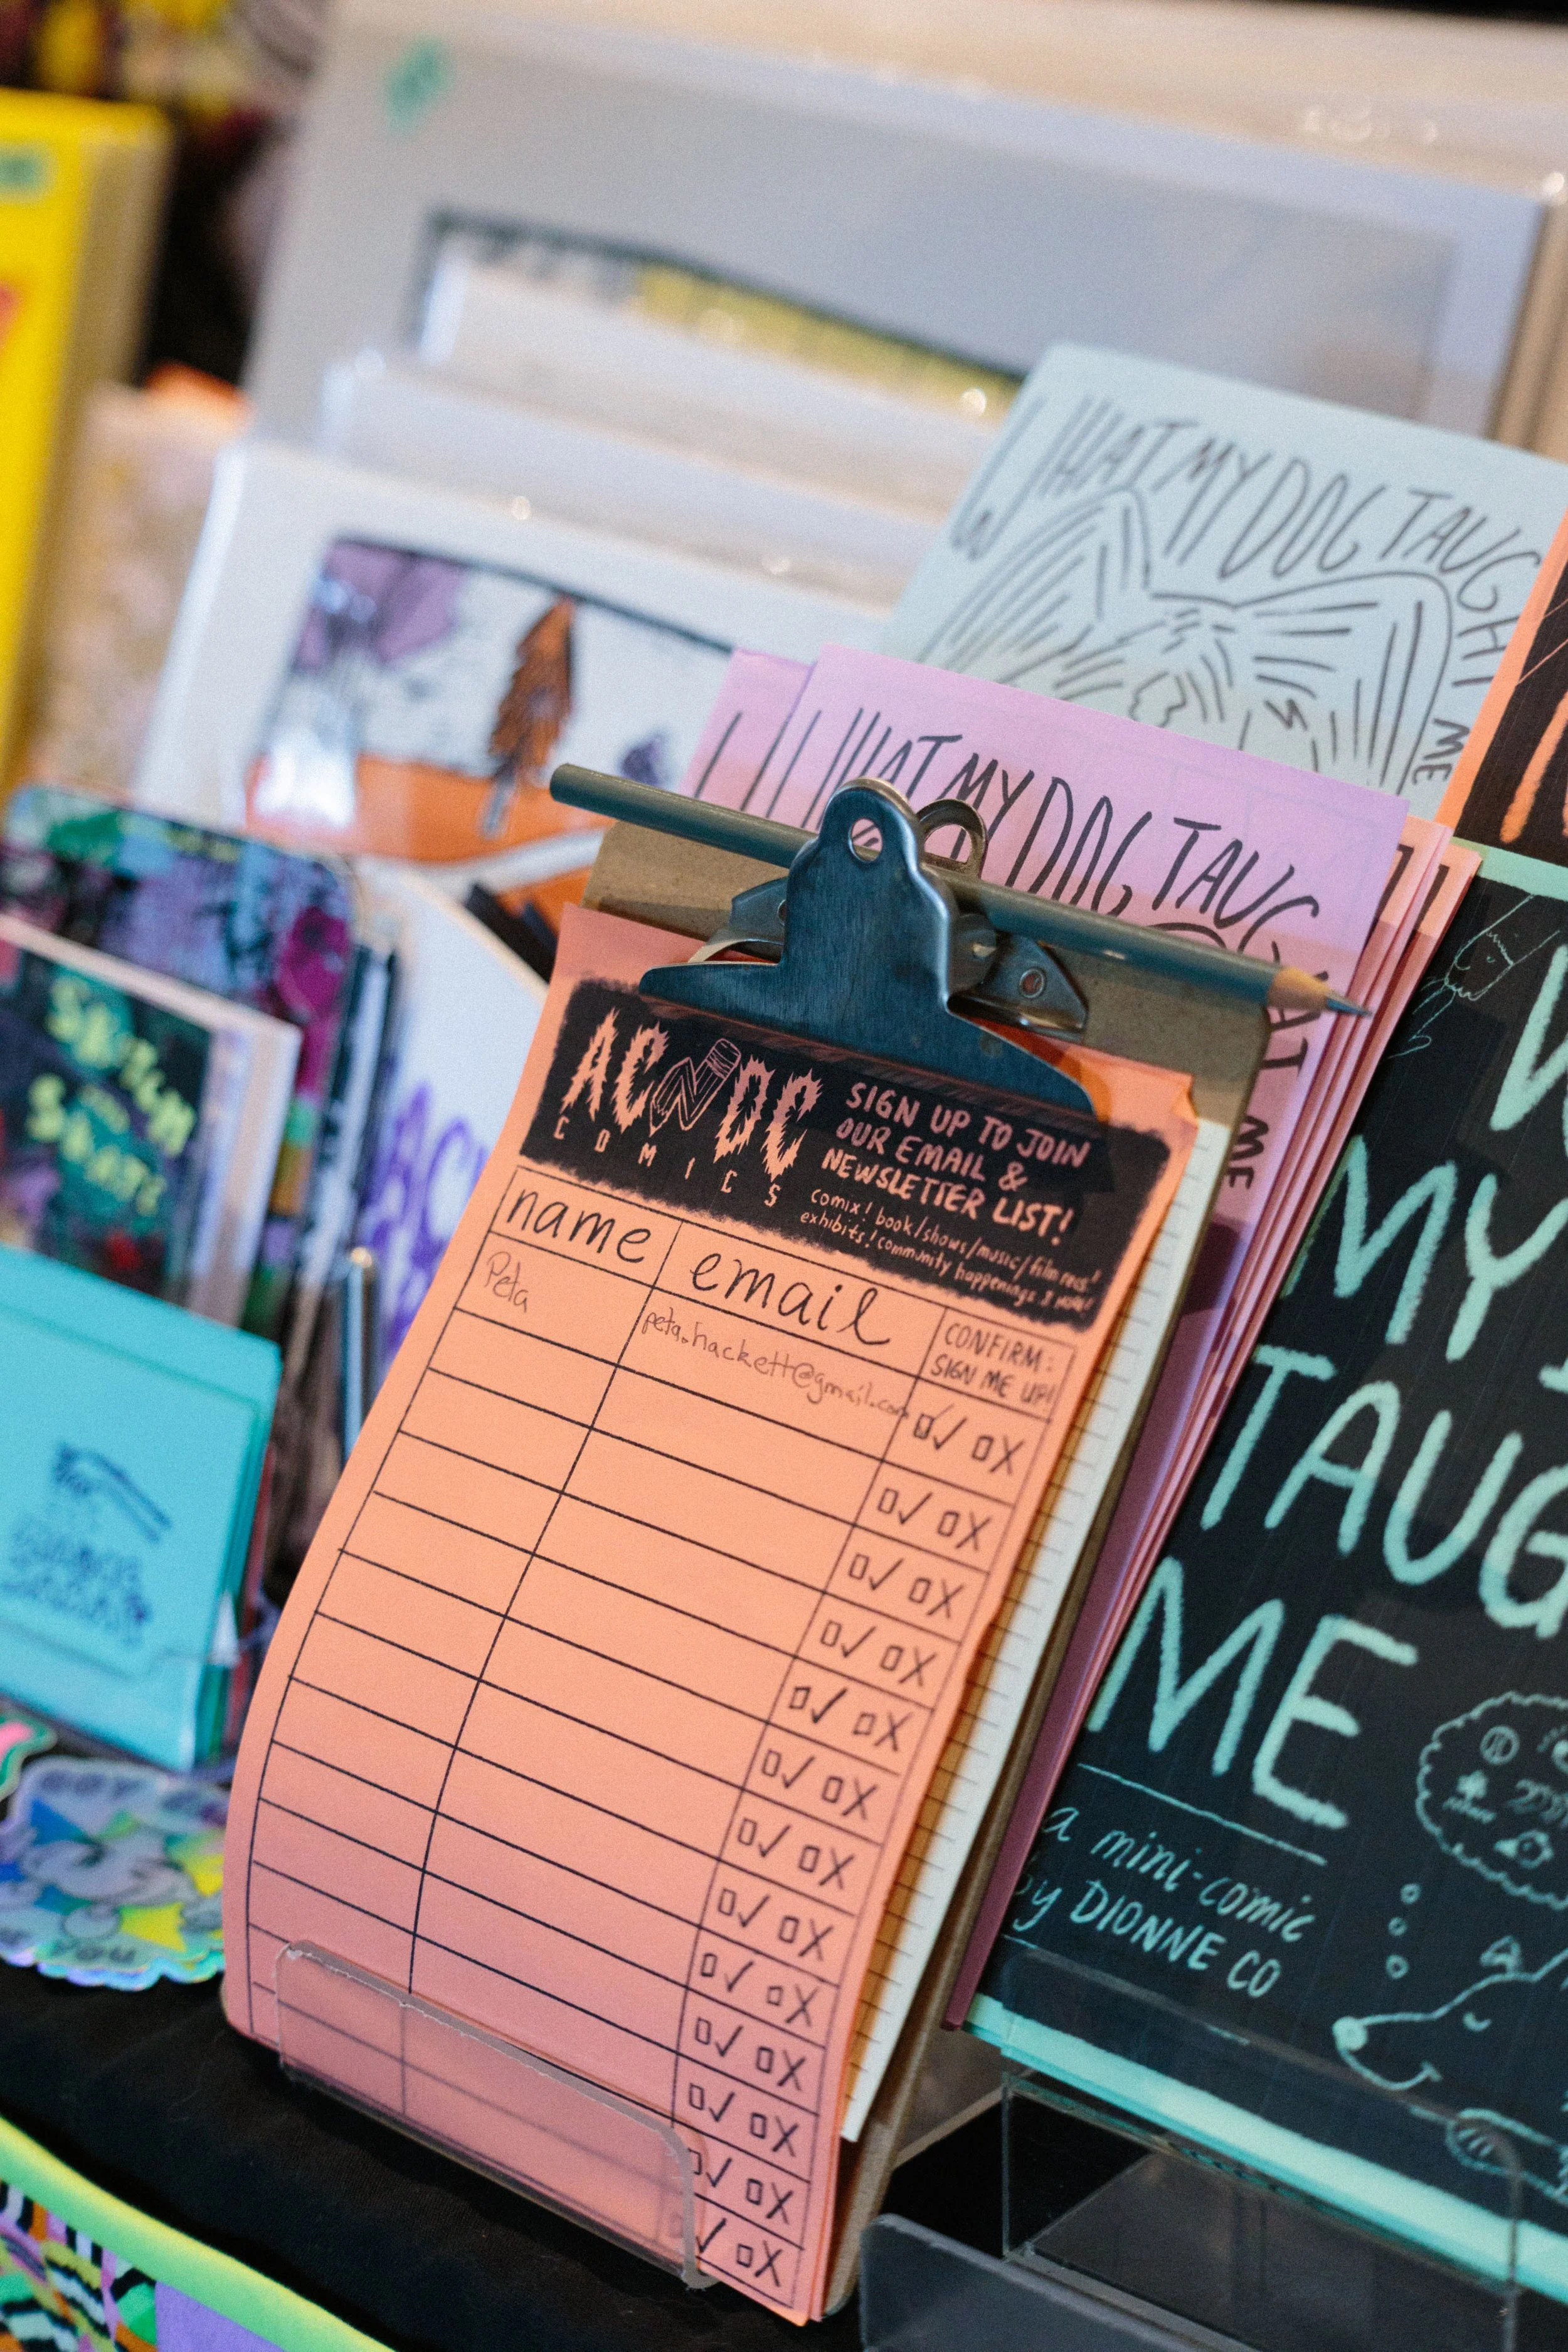 WHAT MY DOG TAUGHT ME
HAT MY DOG TAUG
AT ME
AC DC
COMICS
SIGN UP TO JOIN
OUR EMAIL &
NEWSLETTER LIST!
comix! book/shows/music/film recs!
exhibits! community happenings & more!
name
email
CONFIRM:
SIGN ME UP!
Peta
peta.hackett@gmail.com
W
MY
TAUG
ME
a mini-comic
by DIONNE CO